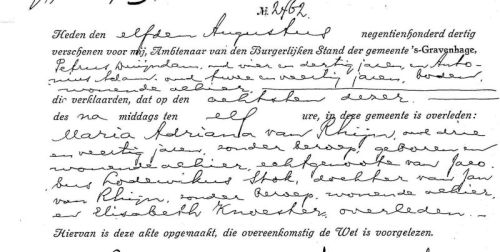 № 2462.
Heden den elfden Augustus negentienhonderd dertig
verschenen voor mij, Ambtenaar van den Burgerlijken Stand der gemeente 's-Gravenhage,
Petrus Duijndam, oud vier en dertig jaren, en Anto-
nius Adam, oud twee en veertig jaren, boden,
wonende alhier
die verklaarden, dat op den achtsten dezer
des na middags ten elf ure, in deze gemeente is overleden:
Maria Adriana van Rhijn, oud drie
en veertig jaren, zonder beroep, geboren en
wonende alhier, echtgenoote van Jaco
bus Lodewikus Stok, dochter van Jan
van Rhijn, zonder beroep, wonende alhier,
en Elisabeth Knoester, overleden.
Hiervan is deze akte opgemaakt, die overeenkomstig de Wet is voorgelezen.